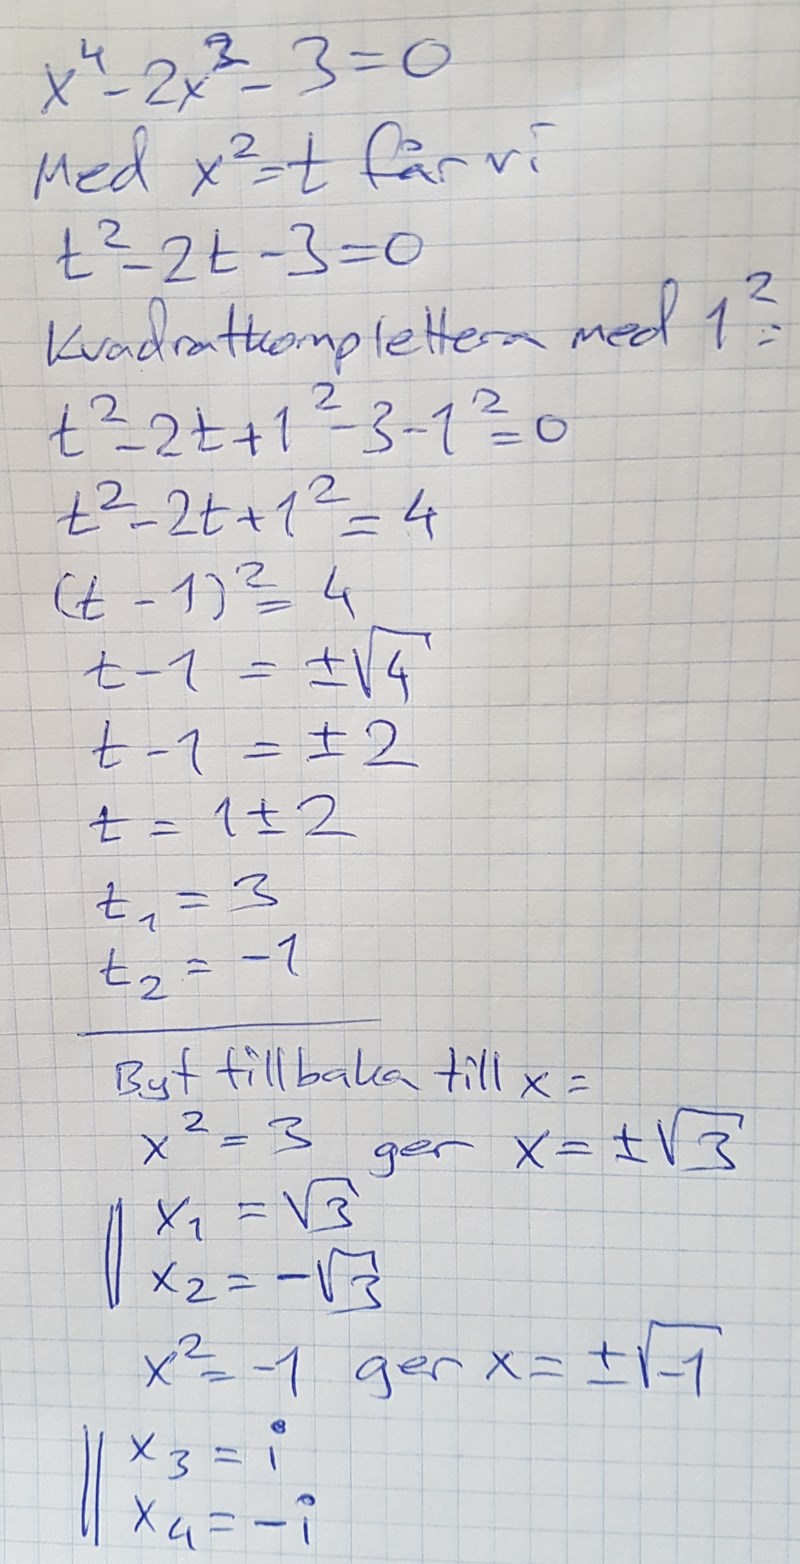 x⁴-2x²-3=0
Med x²=t får vi
t²-2t-3=0
Kvadratkomplettera med 1²:
t²-2t+1²-3-1²=0
t²-2t+1²=4
(t-1)²=4
t-1 = ±√4
t-1 = ±2
t = 1±2
t₁ = 3
t₂ = -1
Byt tillbaka till x =
x² = 3 ger x = ±√3
x₁ = √3
x₂ = -√3
x² = -1 ger x = ±√-1
x₃ = i
x₄ = -i